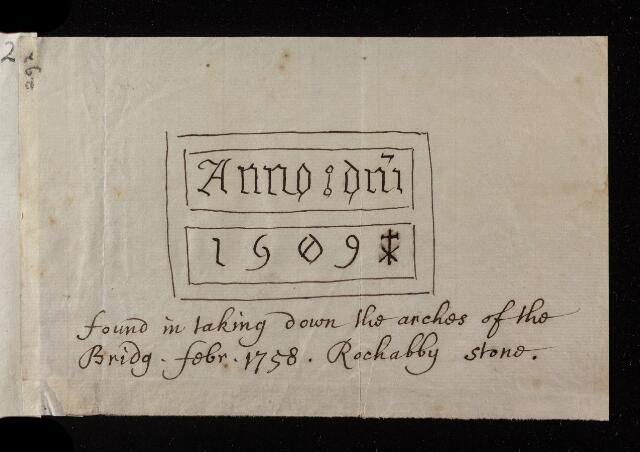 2
292
Anno : dm̄i
1509
found in taking down the arches of the
Bridg . febr . 1758 . Rochabby stone .